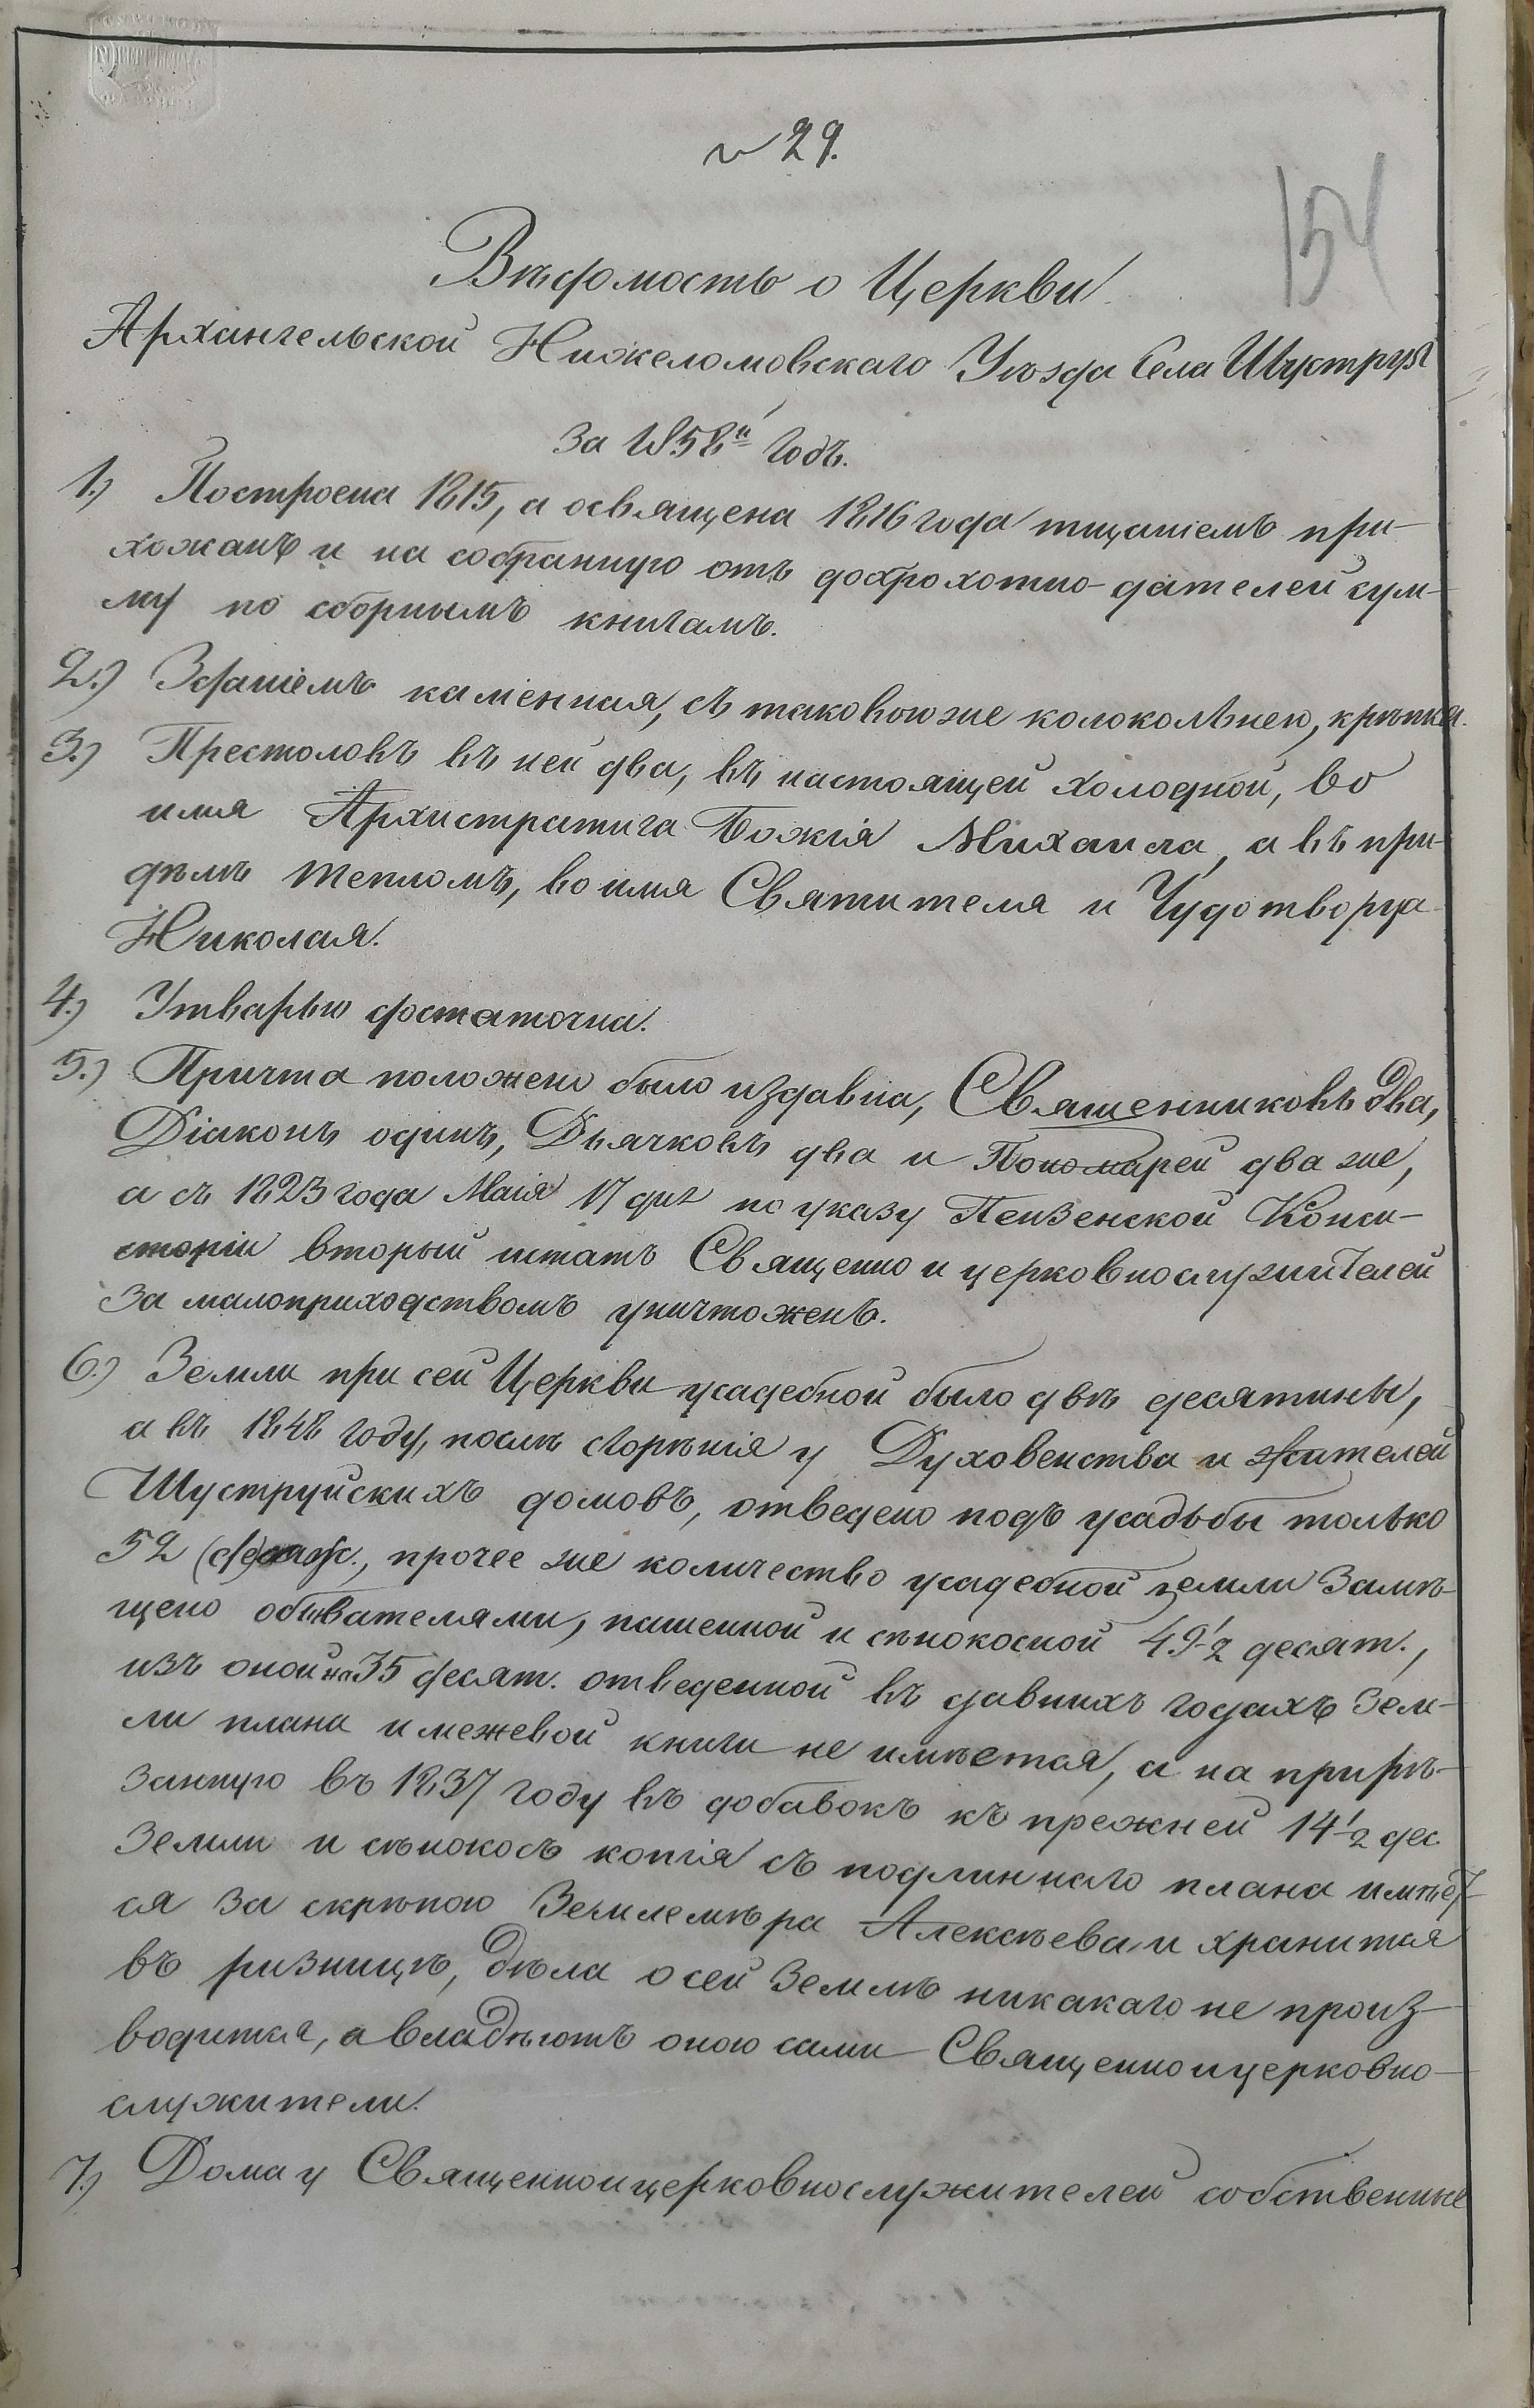 № 29.
154
Вѣдомость о Церкви
Архангельской Нижеломовскаго Уѣзда Села Шуструя
за 1858й Годъ.
1.) Построена 1815, а освящена 1816 года тщаніемъ при-
хожанъ и на собранную отъ доброхотно-дателей сум-
му по сборнымъ книгамъ.
2.) Зданіемъ каменная, съ таковою же колокольнею, крѣпка.
3.) Престоловъ въ ней два, въ настоящей холодной, во
имя Архистратига Божія Михаила, а въ при-
дѣлѣ тепломъ, во имя Святителя и Чудотворца
Николая.
4.) Утварью достаточна.
5.) Причта положено было издавна, Священниковъ два,
Діаконъ одинъ, Дьячковъ два и Пономарей два же,
а съ 1823 года Маія 17 дня по указу Пензенской Конси-
сторіи вторый штатъ Священно и церковнослужителей
за малоприходствомъ уничтоженъ.
6.) Земли при сей Церкви усадебной было двѣ десятины,
а въ 1848 году, послѣ сгорѣнія у Духовенства и жителей
Шуструйскихъ домовъ, отведено подъ усадьбы только
52 саж., прочее же количество усадебной земли замѣ-
щено обывателями, пашенной и сѣнокосной 49½ десят.,
изъ оной на 35 десят. отведенной въ давнихъ годахъ зем-
ли плана и межевой книги не имѣется, а на прирѣ-
занную въ 1837 году въ добавокъ къ прежней 14½ дес.
земли и сѣнокосъ копія съ подлиннаго плана имѣет-
ся за скрѣпою Землемѣра Алексѣева, и хранится
въ ризницѣ, дѣла о сей землѣ никакаго не произ-
водится, а владѣютъ оною сами Священноицерковно-
служители.
7.) Дома у Священноицерковнослужителей собственные